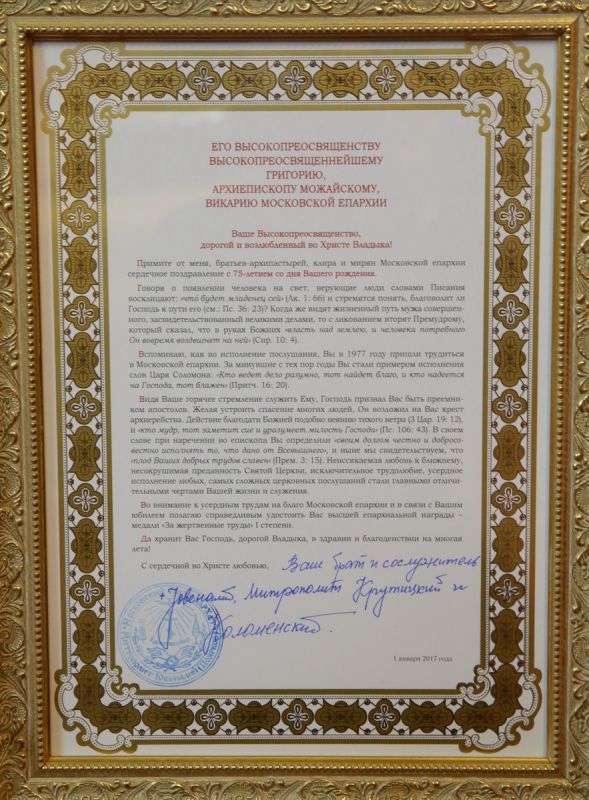 ЕГО ВЫСОКОПРЕОСВЯЩЕНСТВУ
ВЫСОКОПРЕОСВЯЩЕННЕЙШЕМУ
ГРИГОРИЮ,
АРХИЕПИСКОПУ МОЖАЙСКОМУ,
ВИКАРИЮ МОСКОВСКОЙ ЕПАРХИИ
Ваше Высокопреосвященство,
дорогой и возлюбленный во Христе Владыка!
Примите от меня, братьев-архипастырей, клира и мирян Московской епархии
сердечное поздравление с 75-летием со дня Вашего рождения.
Говоря о появлении человека на свет, верующие люди словами Писания
восклицают: «что будет младенец сей» (Лк. 1: 66) и стремятся понять, благоволит ли
Господь к пути его (см.: Пс. 36: 23)? Когда же видят жизненный путь мужа совершен-
ного, засвидетельствованный великими делами, то с ликованием вторят Премудрому,
который сказал, что в руках Божиих «власть над землею, и человека потребного
Он вовремя воздвигнет на ней» (Сир. 10: 4).
Вспоминаю, как во исполнение послушания, Вы в 1977 году пришли трудиться
в Московской епархии. За минувшие с тех пор годы Вы стали примером исполнения
слов Царя Соломона: «Кто ведет дело разумно, тот найдет благо, и кто надеется
на Господа, тот блажен» (Притч. 16: 20).
Видя Ваше горячее стремление служить Ему, Господь призвал Вас быть преемни-
ком апостолов. Желая устроить спасение многих людей, Он возложил на Вас крест
архиерейства. Действие благодати Божией подобно веянию тихого ветра (3 Цар. 19: 12),
и «кто мудр, тот заметит сие и уразумеет милость Господа» (Пс. 106: 43). В своем
слове при наречении во епископа Вы определили «своим долгом честно и добросо-
вестно исполнять то, что дано от Всевышнего», и ныне мы свидетельствуем, что
«плод Ваших добрых трудов славен» (Прем. 3: 15). Неиссякаемая любовь к ближнему,
несокрушимая преданность Святой Церкви, исключительное трудолюбие, усердное
исполнение любых, самых сложных церковных послушаний стали главными отличи-
тельными чертами Вашей жизни и служения.
Во внимание к усердным трудам на благо Московской епархии и в связи с Вашим
юбилеем полагаю справедливым удостоить Вас высшей епархиальной награды –
медали «За жертвенные труды» I степени.
Да хранит Вас Господь, дорогой Владыка, в здравии и благоденствии на многая
лета!
С сердечной во Христе любовью, Ваш брат и сослужитель
+ Ювеналий, Митрополит Крутицкий и
Коломенский.
1 января 2017 года